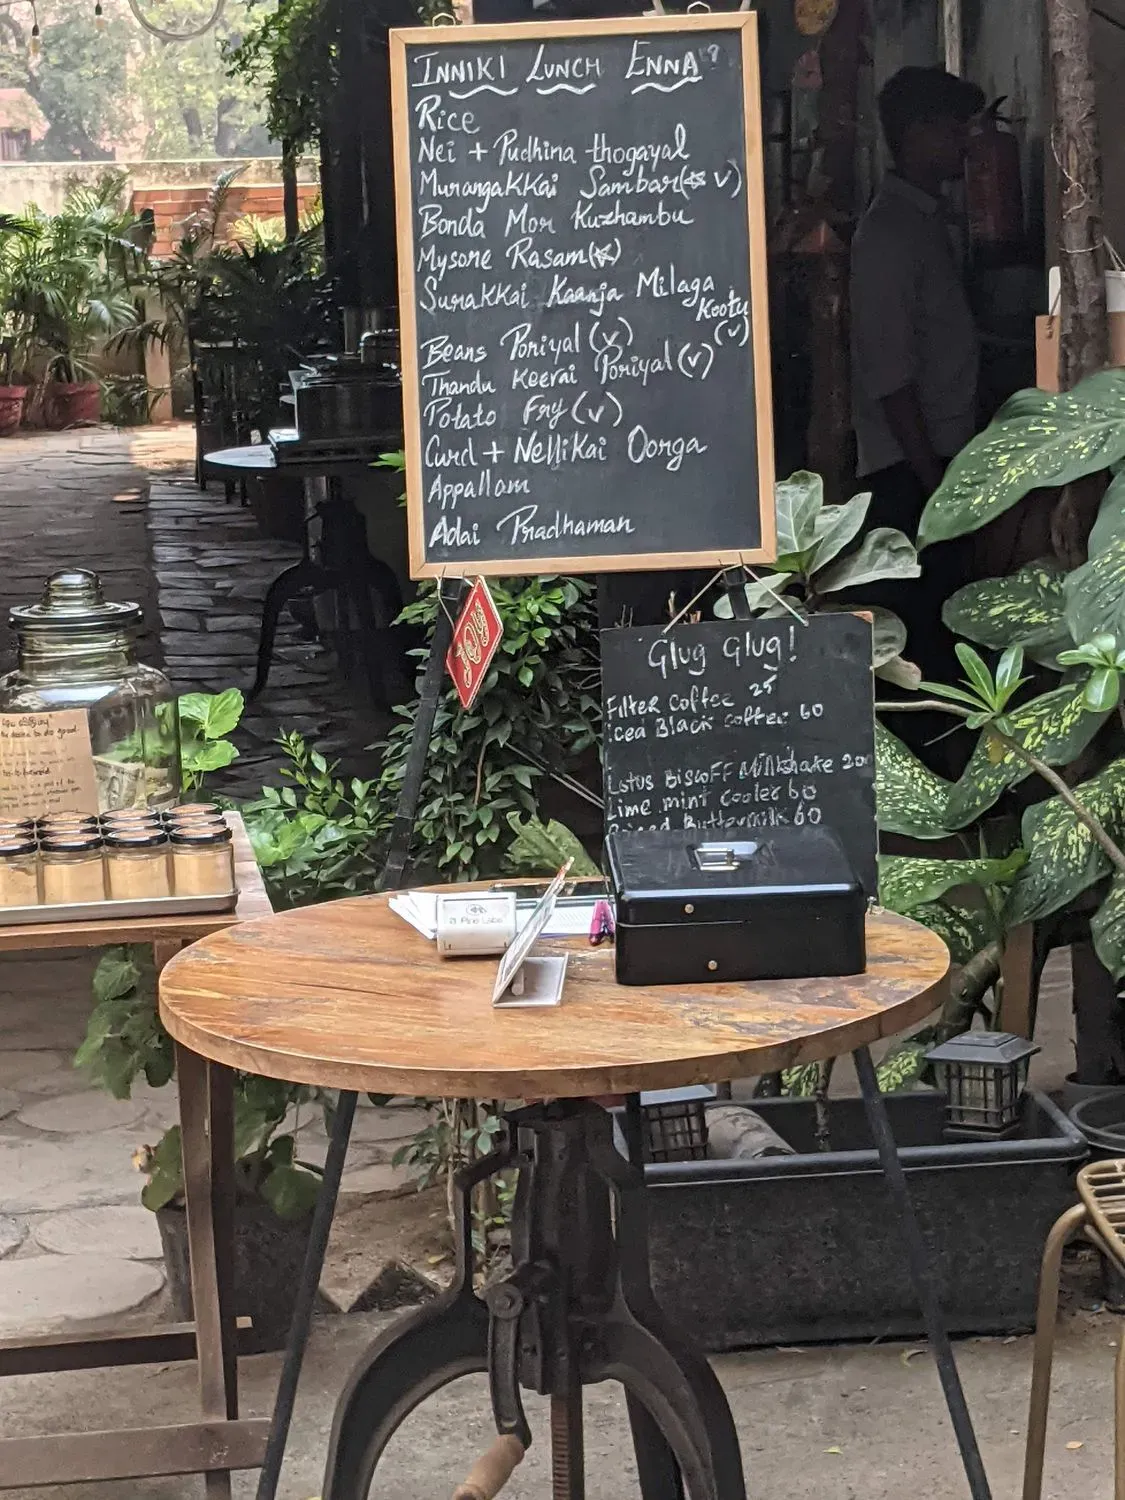 INNIKI LUNCH ENNA?
Rice
Nei + Pudhina thogayal
Murangakkai Sambar(☆ v)
Bonda Mor Kuzhambu
Mysore Rasam(☆)
Surakkai Kaanja Milaga Kootu (v)
Beans Poriyal (v)
Thandu Keerai Poriyal (v)
Potato Fry (v)
Curd + Nellikai Oorga
Appallam
Adai Pradhaman
Glug Glug!
Filter Coffee 25
iced Black coffee 60
Lotus BiscoFF Milkshake 200
Lime mint cooler 60
Buttermilk 60